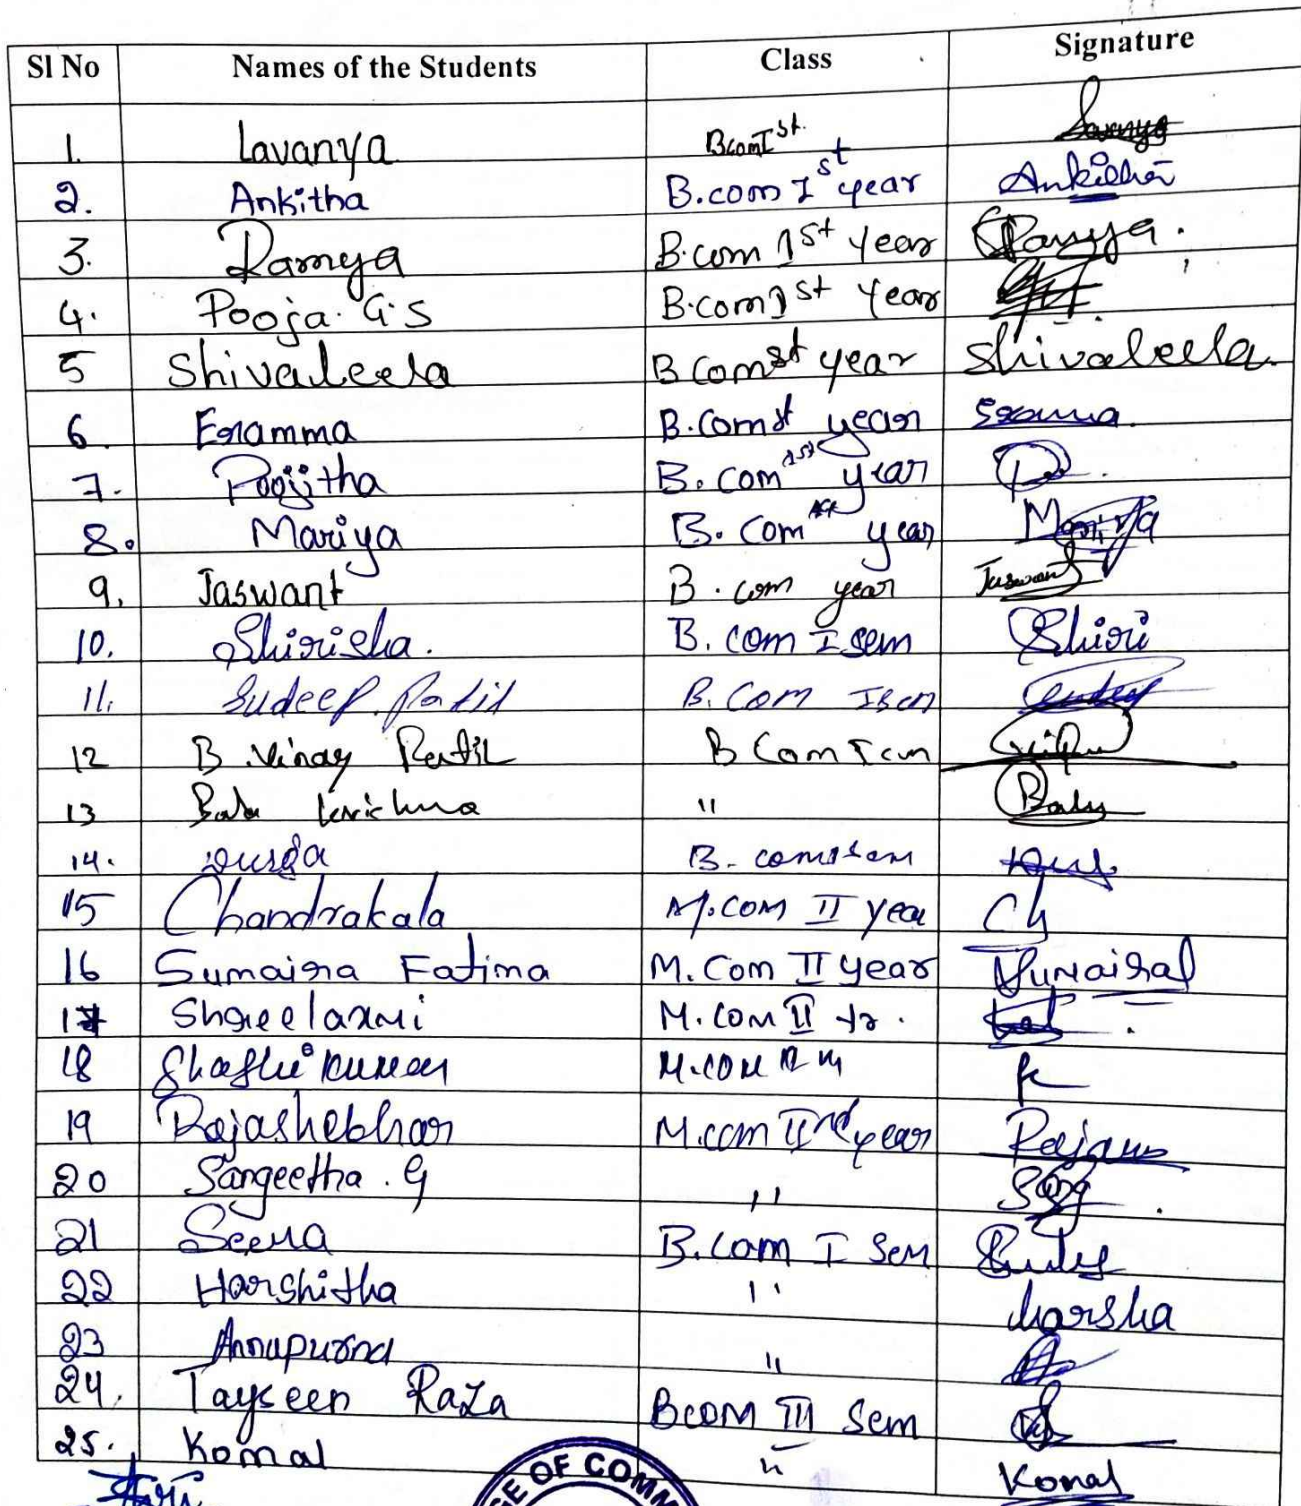 Sl No Names of the Students Class Signature
1. Lavanya Bcom Ist.
2. Ankitha B.com Ist year Ankitha
3. Ramya B.com 1st year Ramya.
4. Pooja. G.S B.com 1st Year
5 Shivaleela B Com st year Shivaleela.
6. Eramma B.Com st year Eramma
7. Poojitha B. com 1st year
8. Mariya B. Com year Mariya
9. Jaswant B. com year Jaswant
10. Shirisha. B. com I sem Shiri
11. Sudeep. Patil B. Com I sem
12 B. Vinay Patil B Com I
13 krishna " Balu
14. Durga B. com I sem
15 Chandrakala M.COM II year Ch
16 Sumaira Fatima M. Com II year Sumaira
17 Shreelaxmi M. COM II Yr.
18 M.COM
19 Rajashekhar M.com IInd year
20 Sangeetha. G "
21 Seema B.com I Sem
22 Harshitha " harsha
23 Annapurna "
24. Tayseen Raza BCOM III Sem
25. Komal " Komal
GE OF COMM